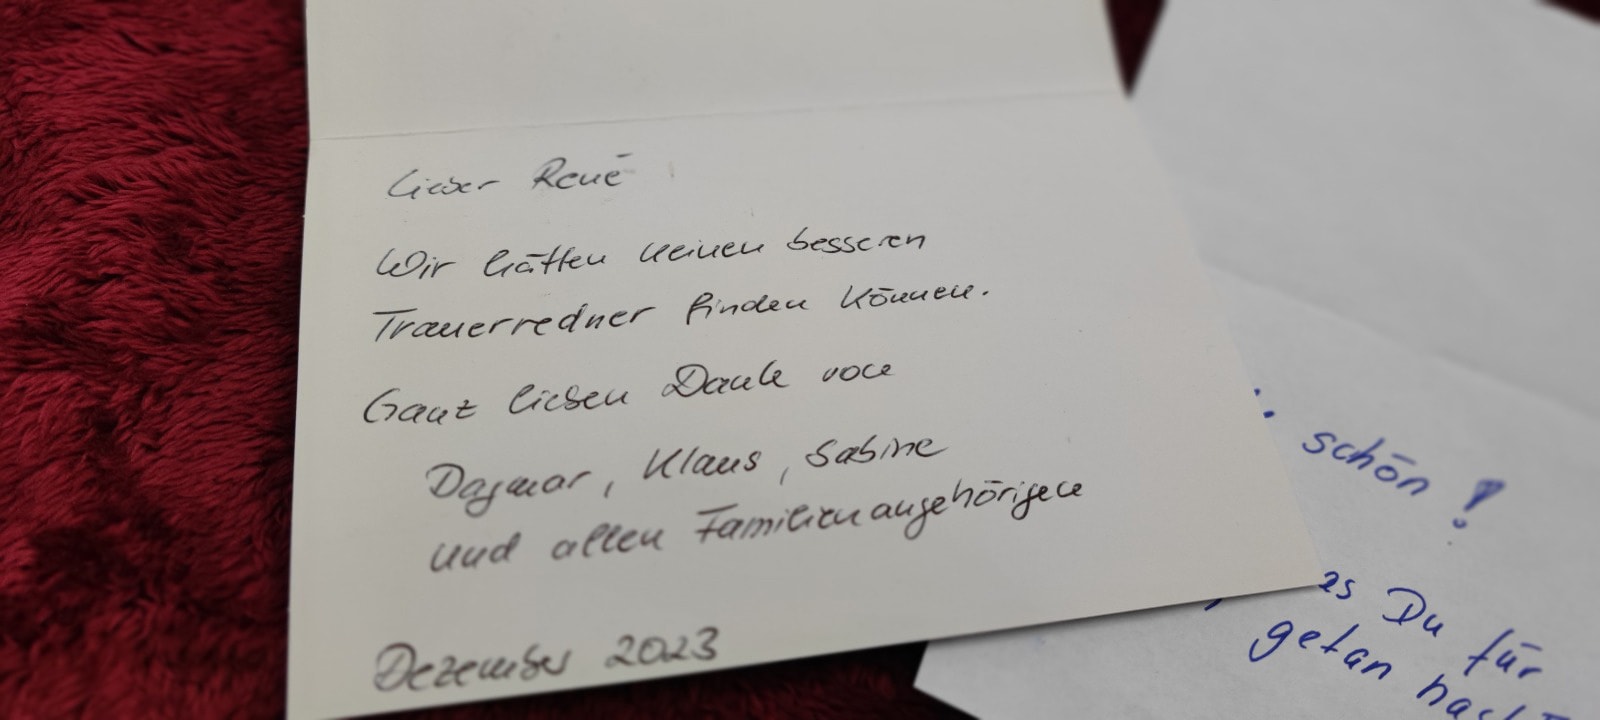 Lieber René
Wir hätten keinen besseren
Trauerredner finden können.
Ganz lieben Dank von
Dagmar, Klaus, Sabine
und allen Familienangehörigen
Dezember 2023
schön!
es Du für
getan hast